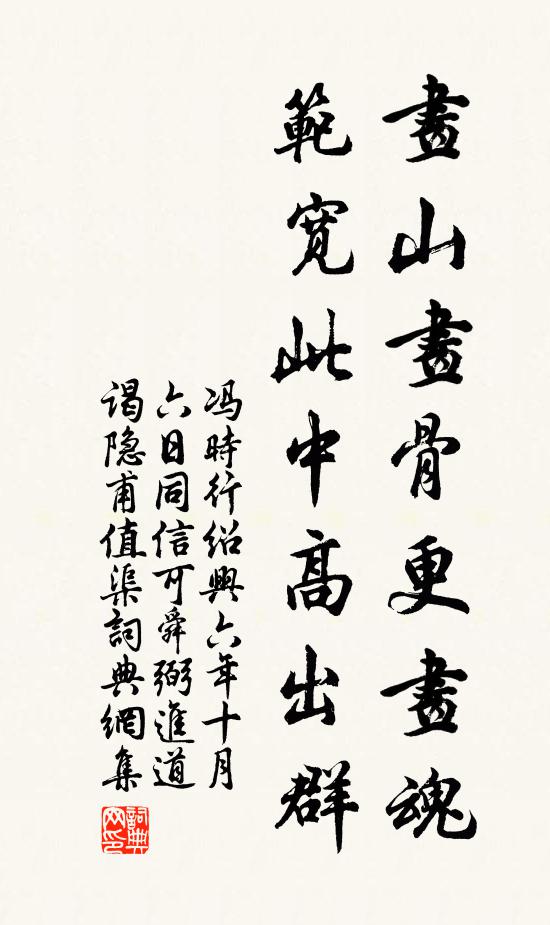 畫山畫骨更畫魂
範寬此中高出群
冯時行紹興六年十月
六日同信可舜弼進道
谒隐甫值渠詞典網集
詞典網印